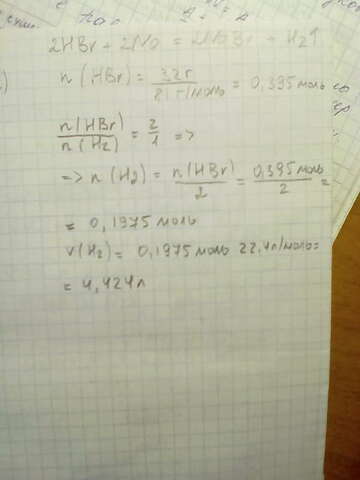 2HBr + 2Na = 2NaBr + H2↑
n (HBr) = 32г / 81 г/моль = 0,395 моль
n(HBr) / n(H2) = 2/1 =>
=> n (H2) = n(HBr) / 2 = 0,395 моль / 2 =
= 0,1975 моль
V(H2) = 0,1975 моль 22,4л/моль=
= 4,424л